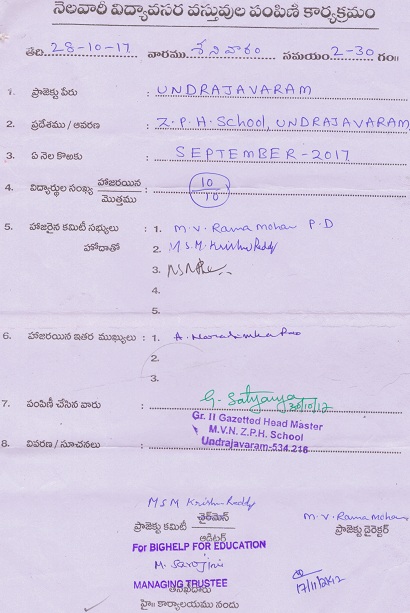 నెలవారీ విద్యావసర వస్తువుల పంపిణి కార్యక్రమం
తేది. 28-10-17 వారము. శనివారం సమయం. 2-30 గం॥
1. ప్రాజెక్టు పేరు : UNDRAJAVARAM
2. ప్రదేశము / ఆవరణ : Z.P.H. School, UNDRAJAVARAM
3. ఏ నెల కొఱకు : SEPTEMBER-2017
4. విద్యార్థుల సంఖ్య హాజరయిన / మొత్తము : 10/10
5. హాజరైన కమిటీ సభ్యులు : 1. M.V. Rama Mohan P.D
హోదాతో 2. M S.M. Krishna Reddy
3.
4.
5.
6. హాజరయిన ఇతర ముఖ్యులు : 1. A.
2.
3.
7. పంపిణీ చేసిన వారు : G. Satyanarayana
Gr. II Gazetted Head Master
M.V.N. Z.P.H. School
Undrajavaram-534 216
8. వివరణ / సూచనలు :
M S M Krishna Reddy
ప్రాజెక్టు కమిటీ చైర్‌మెన్ / ఆడిటర్
M.V. Rama Mohan
ప్రాజెక్టు డైరెక్టర్
For BIGHELP FOR EDUCATION
M. Sarojini
MANAGING TRUSTEE
హై॥ కార్యాలయము నందు